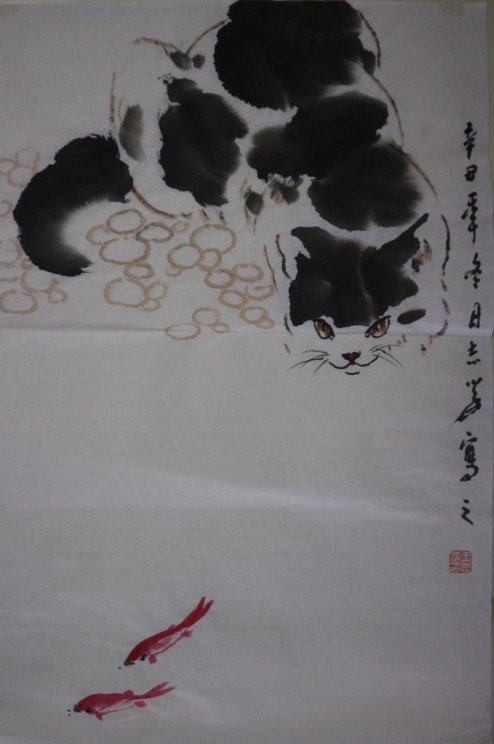 辛丑年冬月志岩寫之